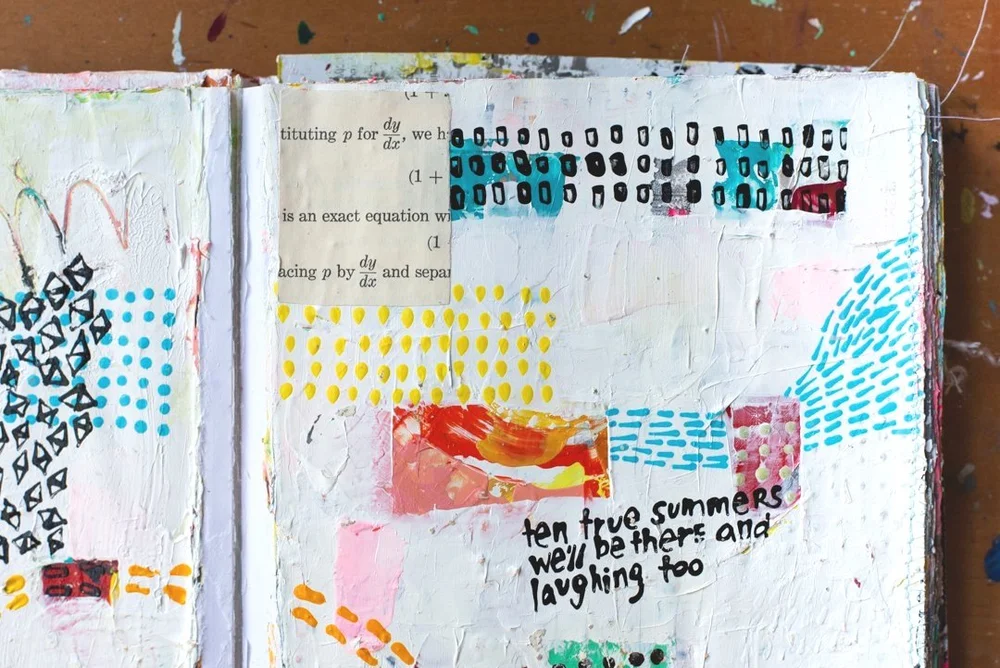 (1 +
tituting p for dy/dx, we h
(1 +
is an exact equation wi
(1
acing p by dy/dx and separ
ten true summers
we'll be there and
laughing too